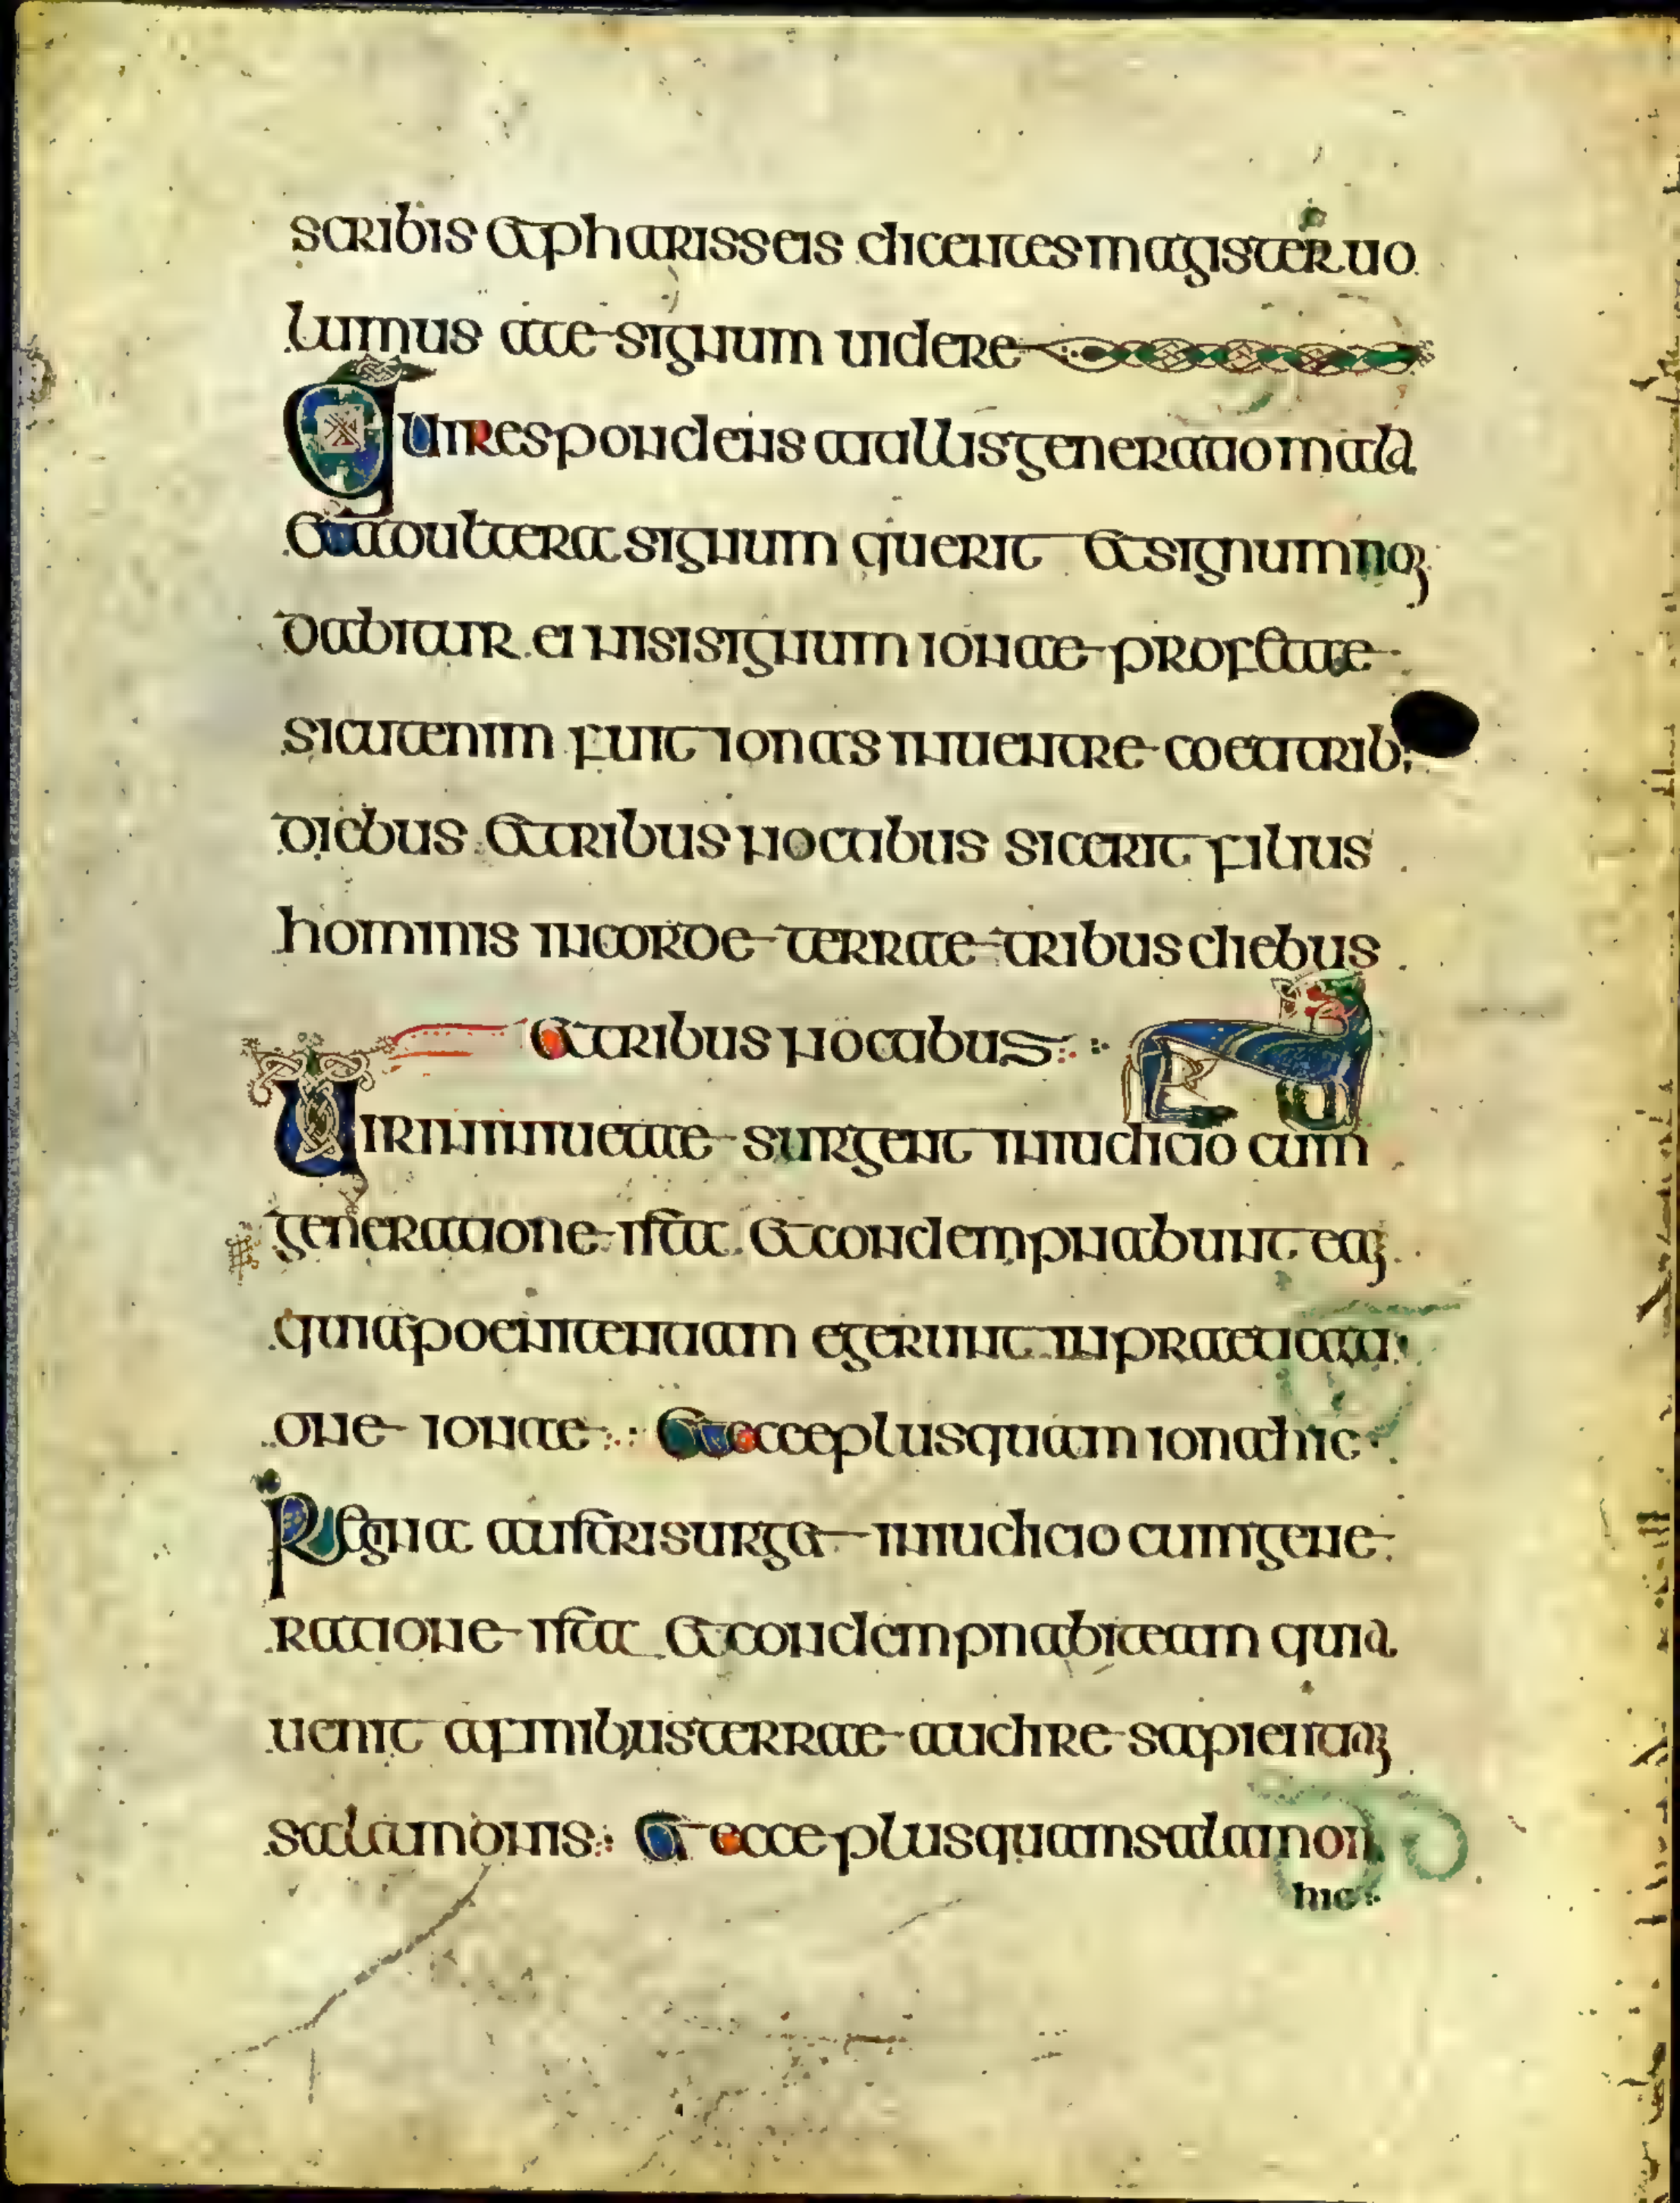 scribis et pharisseis dicentes magister uo
lumus a te signum uidere
Qui respondens ait illis generatio mala
et adultera signum querit et signum nō
dabitur ei nisi signum ionae profetae
sicut enim fuit ionas in uentre coeti trib;
diebus et tribus noctibus sic erit filius
hominis in corde terrae tribus diebus
et tribus noctibus
Uiri niniuetae surgent in iudicio cum
generatione ista et condempnabunt eam
quia poenitentiam egerunt in praeticati
one ionae Et ecce plus quam iona hic
Regina austri surget in iudicio cum gene
ratione ista et condempnabit eam quia
uenit a finibus terrae audire sapientiam
salamonis Et ecce plus quam salamon
hic